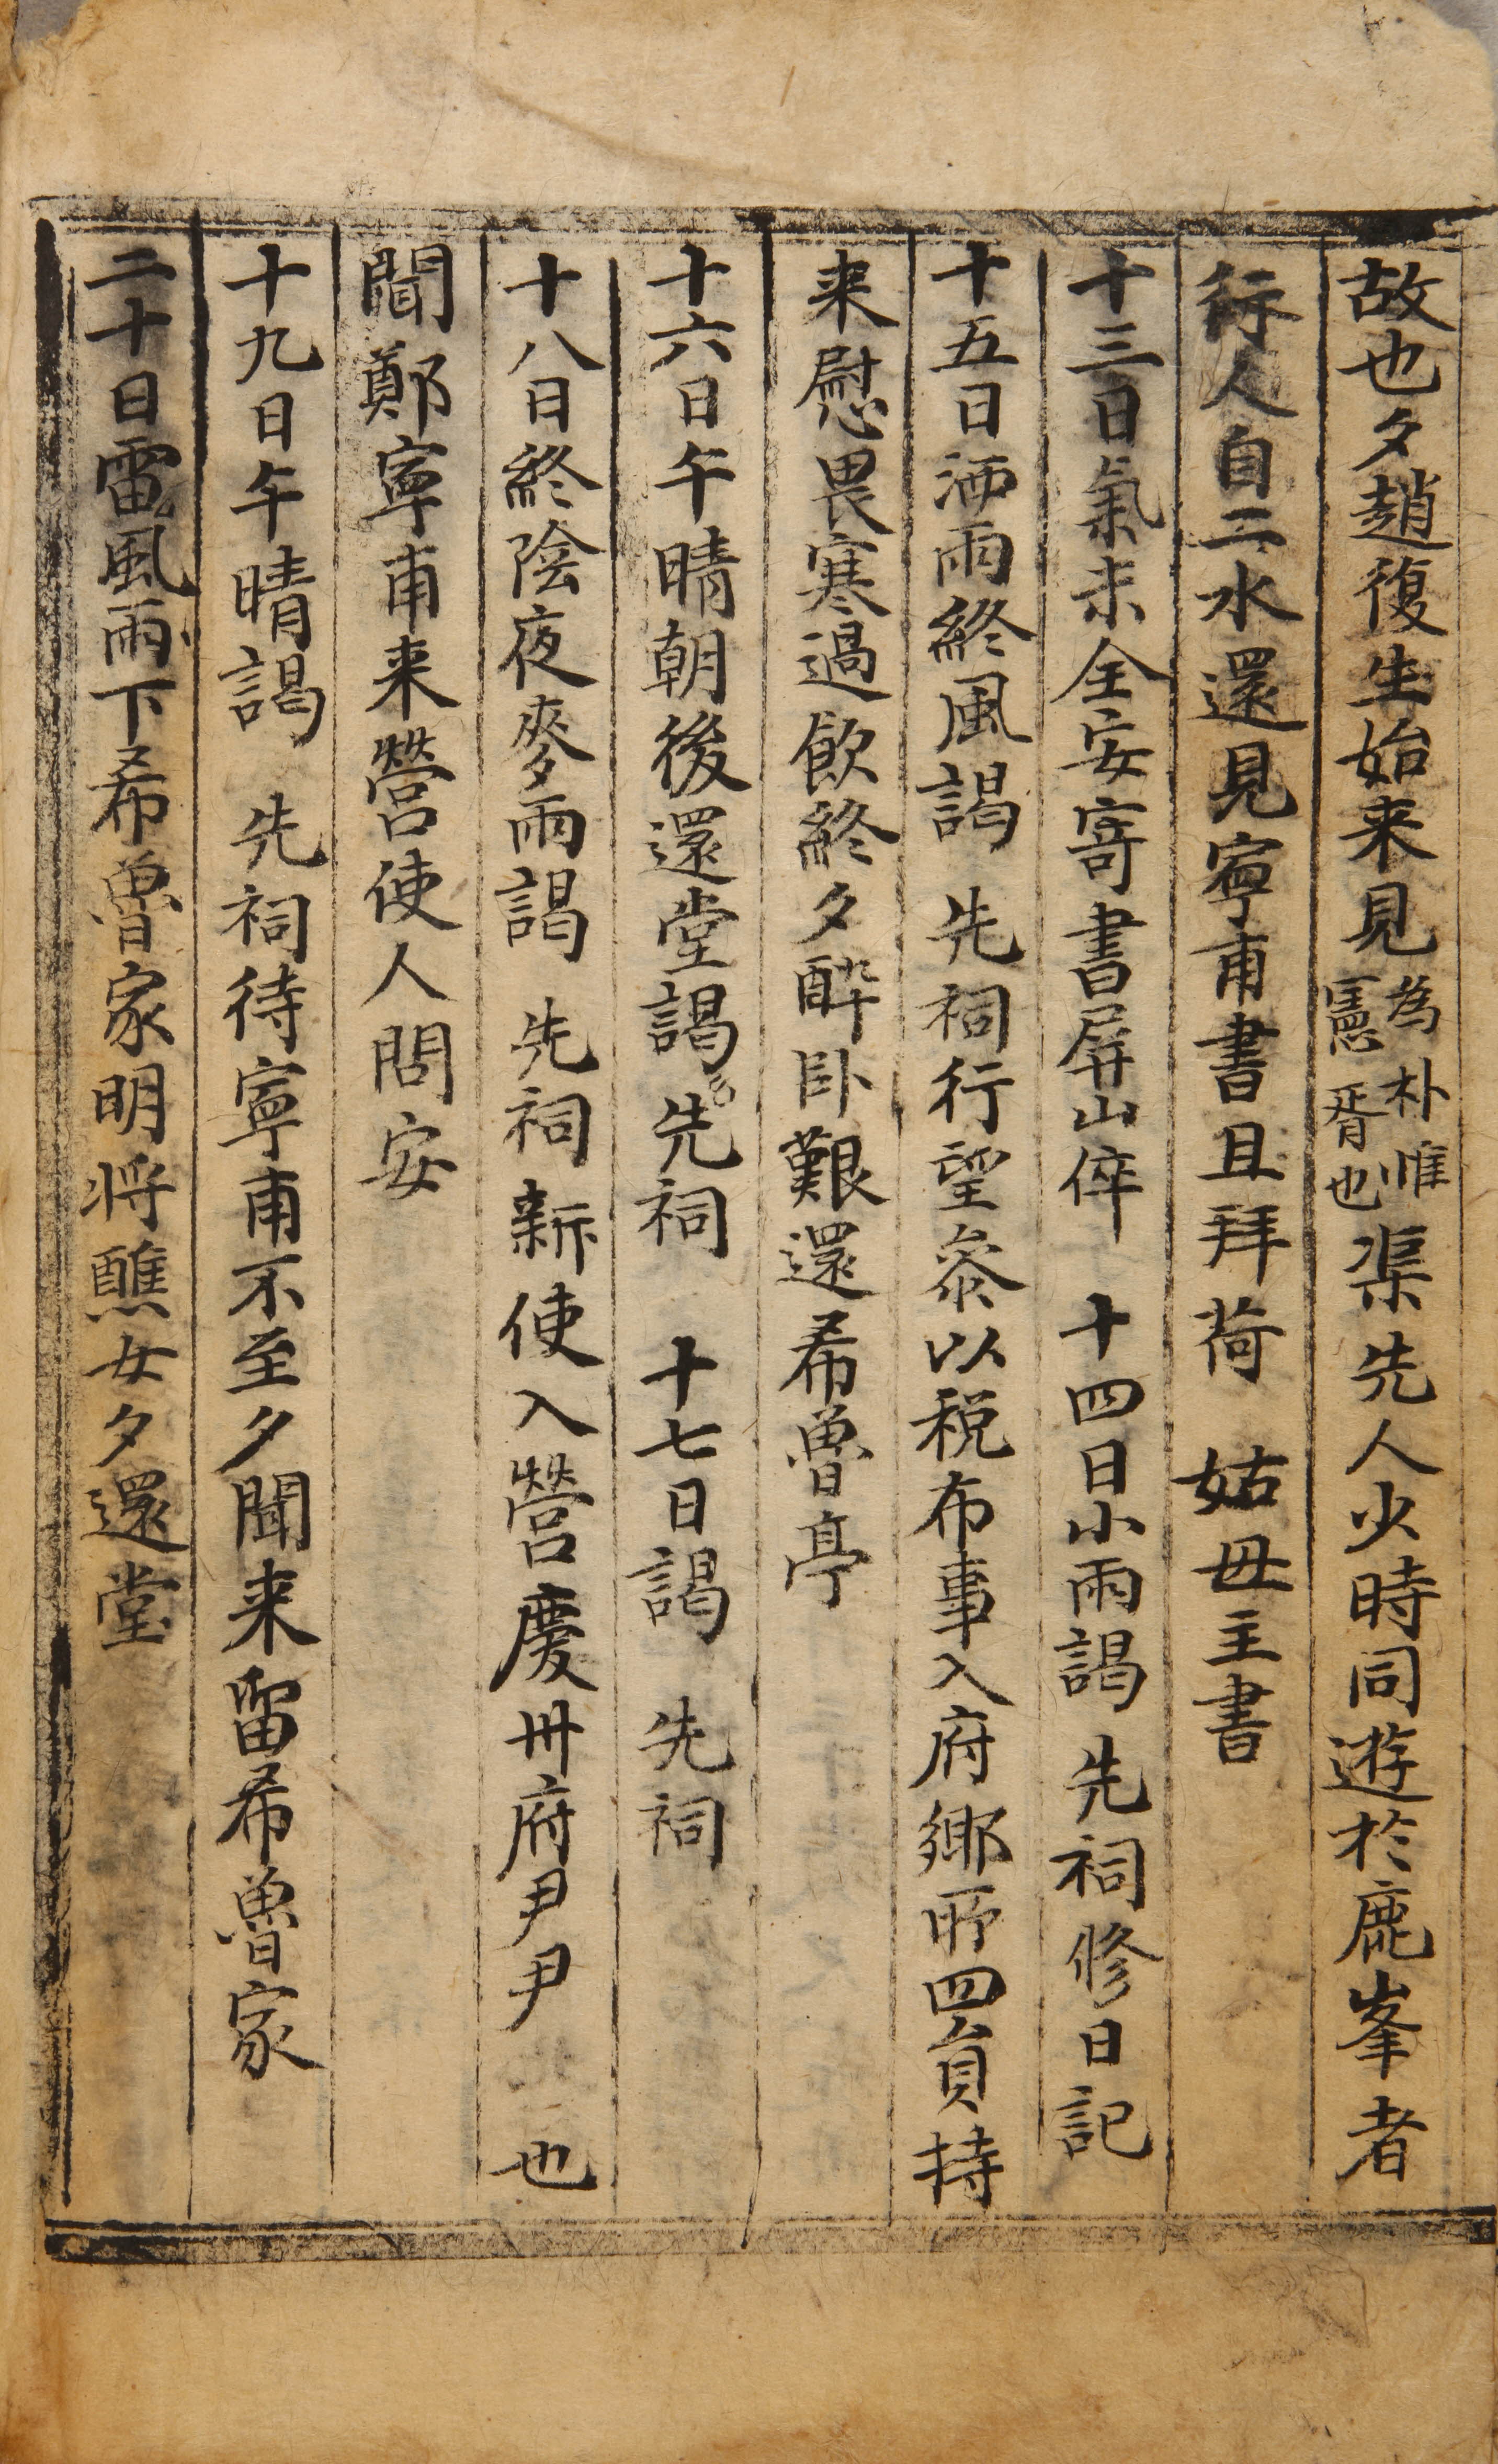 故也夕趙復生始来見為朴惟憲壻也渠先人少時同遊於鹿峯者
行人自二水還見寧甫書且拜荷　姑母主書
十三日氣未全安寄書屛山倅　十四日小雨謁　先祠修日記
十五日洒雨終風謁　先祠行望叅以稅布事入府鄕所四員持
来慰畏寒過飮終夕醉卧艱還希魯亭
十六日午晴朝後還堂謁先祠　十七日謁　先祠
十八日終陰夜麥雨謁　先祠新使入營慶州府尹尹　也
聞鄭寧甫来營使人問安
十九日午晴謁　先祠待寧甫不至夕聞来留希魯家
二十日雷風雨下希魯家明將醮女夕還堂